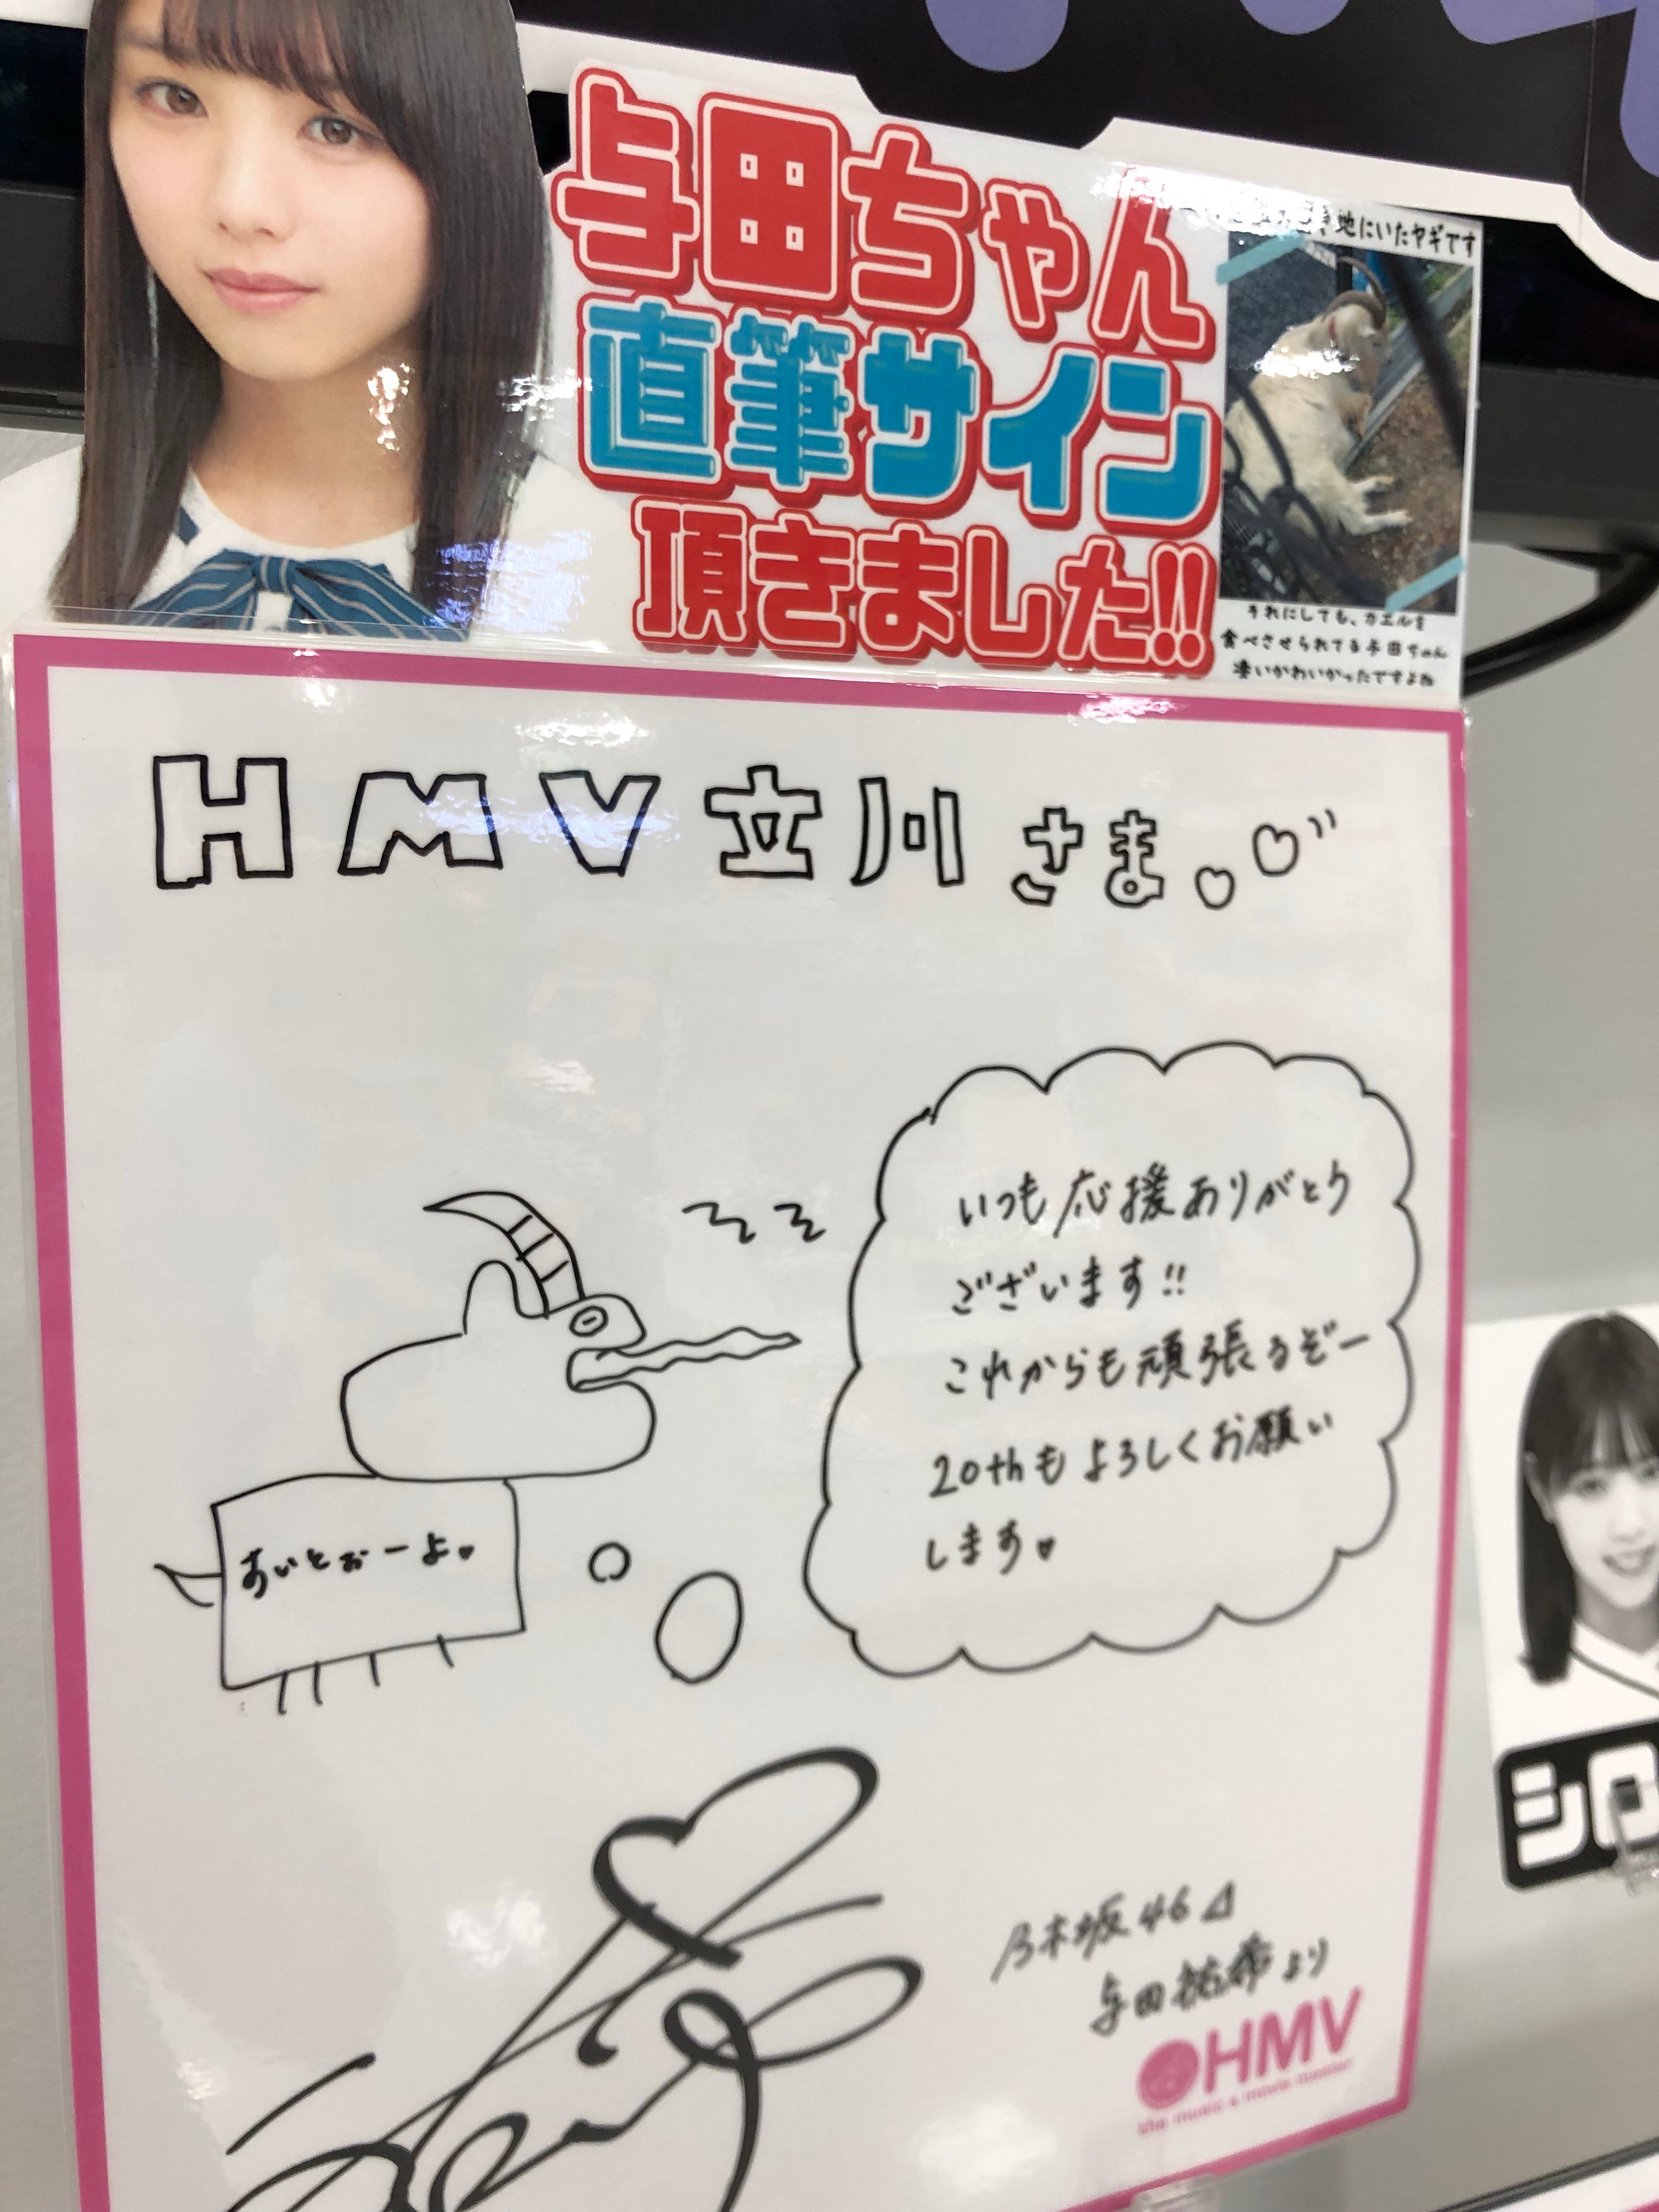 与田ちゃん
直筆サイン
頂きました!!
地にいたヤギです
それにしても、カエルを
食べさせられてる与田ちゃん
凄いかわいかったですよね
HMV立川さま。♡"
いつも応援ありがとう
ございます!!
これからも頑張るぞー
20thもよろしくお願い
します♥
すいとぉーよ♥
乃木坂46⊿
与田祐希より
HMV
the music & movie master
シロ